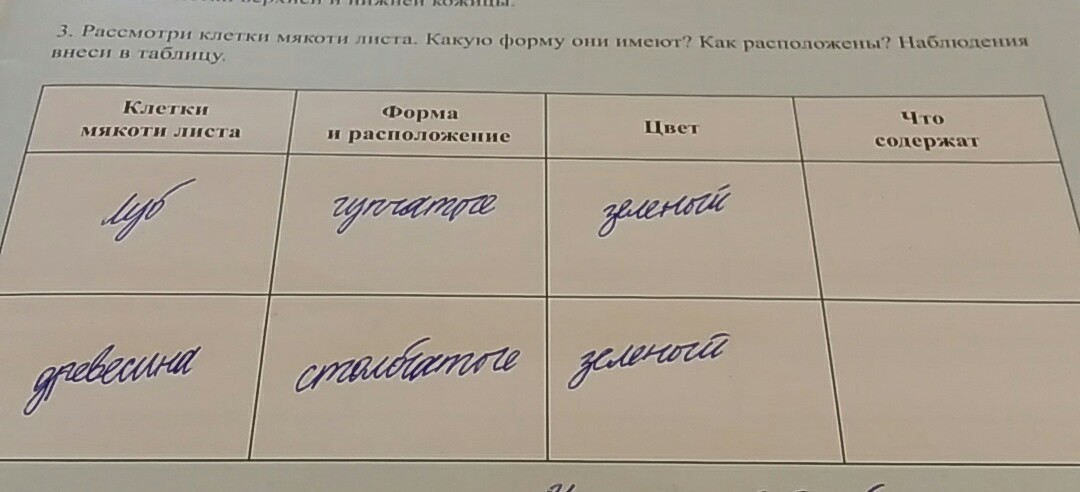 верхней и нижней кожицы.
3. Рассмотри клетки мякоти листа. Какую форму они имеют? Как расположены? Наблюдения
внеси в таблицу.
Клетки
мякоти листа
Форма
и расположение
Цвет
Что
содержат
луб
губчатые
зеленый
древесина
столбчатые
зеленый